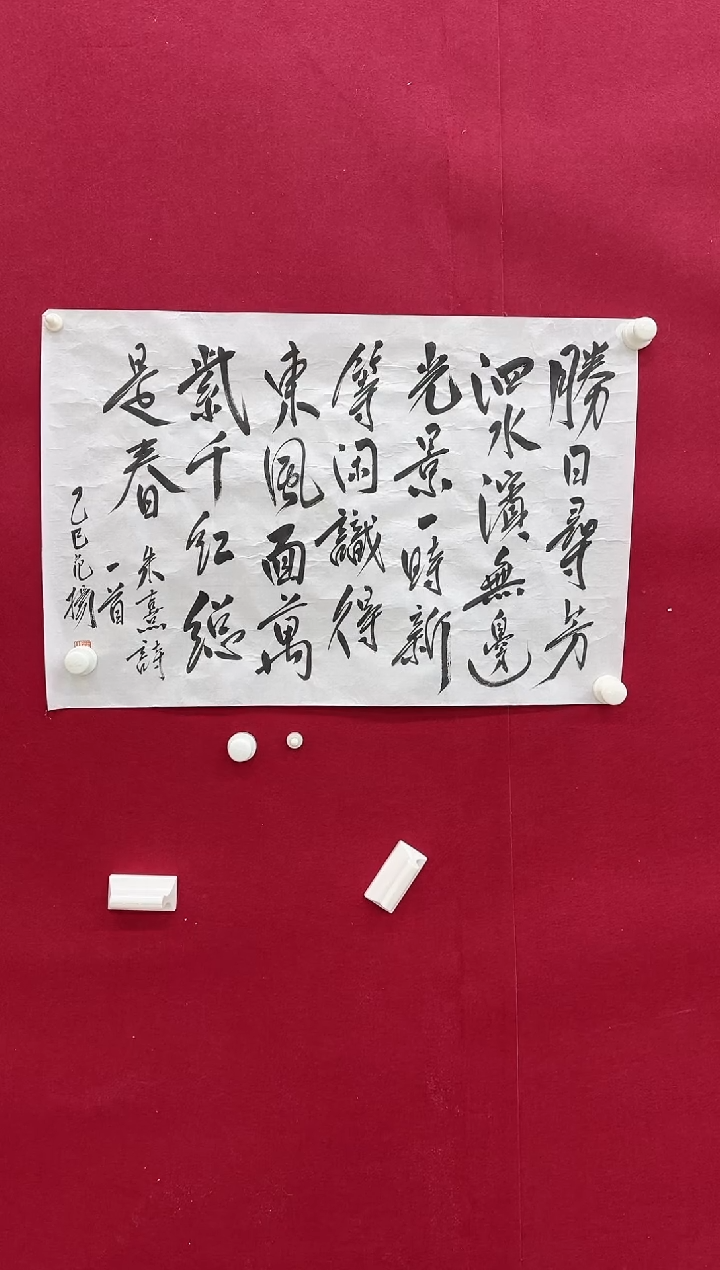 勝日尋芳
泗水濱無邊
光景一時新
等闲識得
東風面萬
紫千红總
是春
朱熹詩
一首
乙巳范